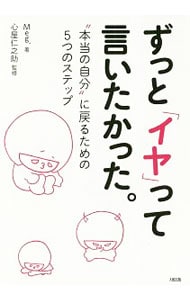 ずっと「イヤ」って
言いたかった。
"本当の自分"に戻るための
5つのステップ
Meg. 著
心屋仁之助 監修
大和出版